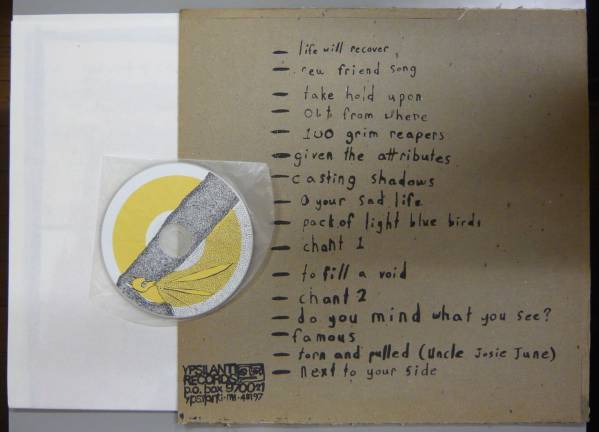 life will recover
new friend song
take hold upon
out from where
100 grim reapers
given the attributes
casting shadows
O your sad life
pack of light blue birds
chant 1
to fill a void
chant 2
do you mind what you see?
famous
torn and pulled (Uncle Josie June)
next to your side
YPSILANTI
RECORDS
p.o. box 970021
ypsilanti·mi·48197